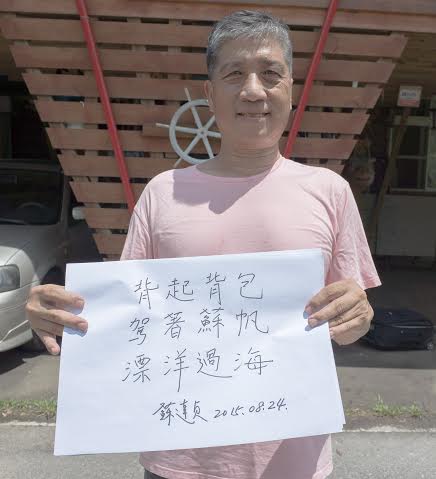 背起背包
駕著蘇帆
漂洋過海
蘇達貞 2015.08.24.